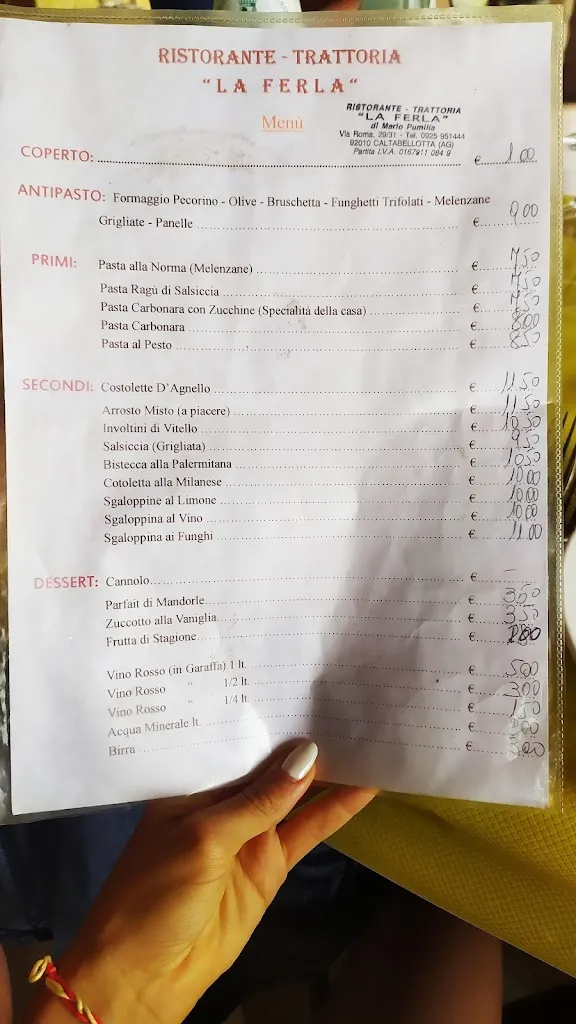 RISTORANTE - TRATTORIA
"LA FERLA"
Menù
RISTORANTE - TRATTORIA
"LA FERLA"
di Mario Pumilia
Via Roma, 29/31 - Tel. 0925 951444
92010 CALTABELLOTTA (AG)
Partita I.V.A. 0167911 084 9
COPERTO: € 1.00
ANTIPASTO: Formaggio Pecorino - Olive - Bruschetta - Funghetti Trifolati - Melenzane
Grigliate - Panelle € 9.00
PRIMI: Pasta alla Norma (Melenzane) € 7,50
Pasta Ragù di Salsiccia € 7,50
Pasta Carbonara con Zucchine (Specialità della casa) € 7,50
Pasta Carbonara € 8,00
Pasta al Pesto € 8,50
SECONDI: Costolette D'Agnello € 11.50
Arrosto Misto (a piacere) € 11,50
Involtini di Vitello € 10,50
Salsiccia (Grigliata) € 9,50
Bistecca alla Palermitana € 10,50
Cotoletta alla Milanese € 10.00
Sgaloppine al Limone € 10.00
Sgaloppina al Vino € 10.00
Sgaloppina ai Funghi € 11.00
DESSERT: Cannolo € -
Parfait di Mandorle € 3,50
Zuccotto alla Vaniglia € 3,50
Frutta di Stagione €
Vino Rosso (in Garaffa) 1 lt. € 5,00
Vino Rosso " 1/2 lt. € 3,00
Vino Rosso " 1/4 lt. € 1,50
Acqua Minerale lt. €
Birra €